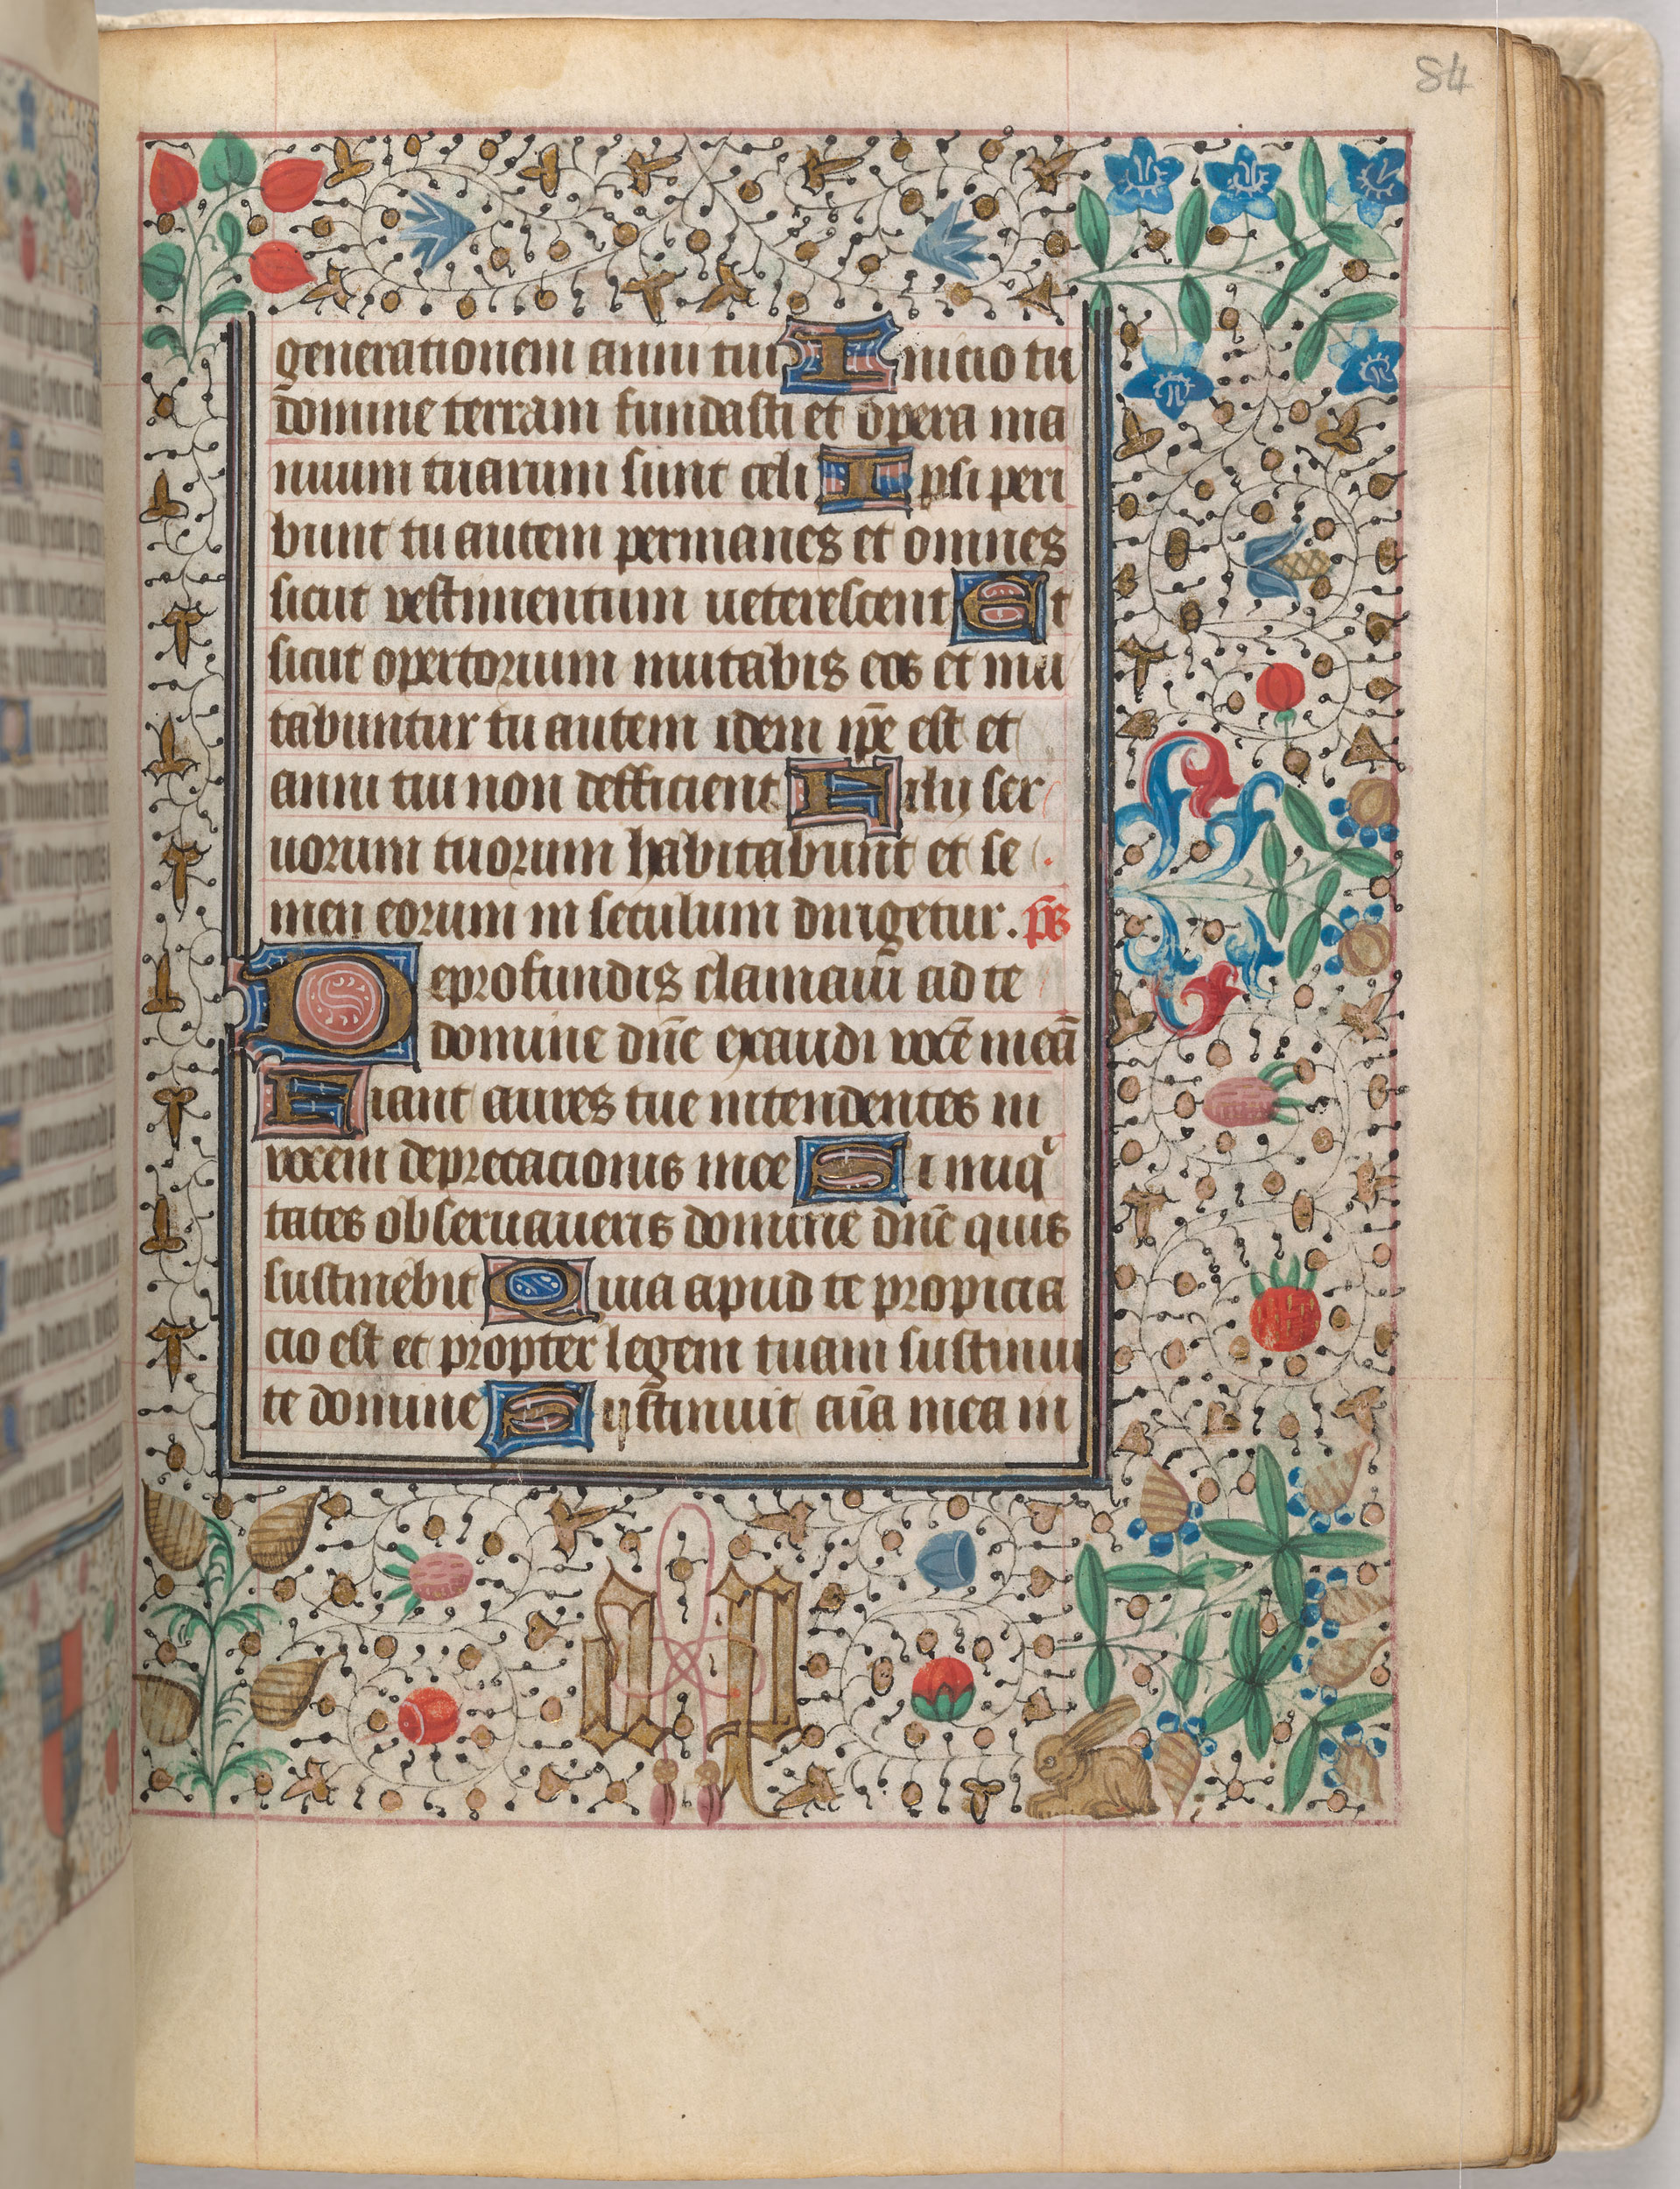 84
generationem anni tui Inicio tu
domine terram fundasti et opera ma
nuum tuarum sunt celi Ipsi peri
bunt tu autem permanes et omnes
sicut vestimentum ueterescent Et
sicut opertorium mutabis eos et mu
tabuntur tu autem idem ip̄e est et
anni tui non defficient Filij ser
uorum tuorum habitabunt et se
men eorum in seculum dirigetur. p̄s
Deprofundis clamaui ad te
domine dn̄e exaudi vocē meā
Fiant aures tue intendentes in
vocem deprecacionis mee Si iniqͥ
tates obseruaueris domine dn̄e quis
sustinebit Quia apud te propicia
cio est et propter legem tuam sustinui
te domine Sustinuit aīa mea in